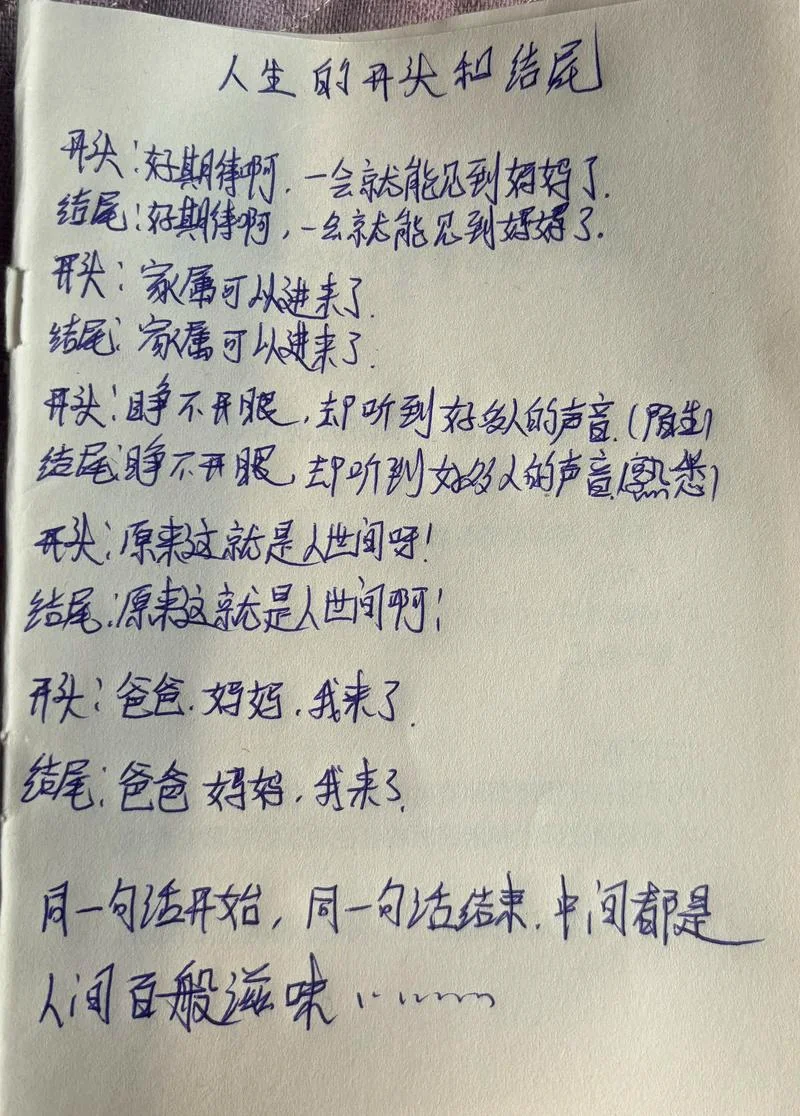 人生的开头和结尾
开头:好期待啊,一会就能见到妈妈了.
结尾:好期待啊,一会就能见到妈妈了.
开头:家属可以进来了.
结尾:家属可以进来了.
开头:睁不开眼,却听到好多人的声音.(陌生)
结尾:睁不开眼,却听到好多人的声音(熟悉)
开头:原来这就是人世间呀!
结尾:原来这就是人世间啊!
开头:爸爸.妈妈.我来了.
结尾:爸爸妈妈.我来了.
同一句话开始,同一句话结束.中间都是
人间百般滋味………